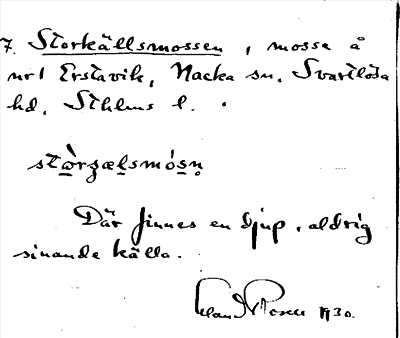 7. Storkällsmossen, mosse å
nr 1 Erstavik, Nacka sn. Svartlösa
hd. Sthlms l.
stòrʒælsmósn̥
Där finnes en djup, aldrig
sinande källa.
1930.